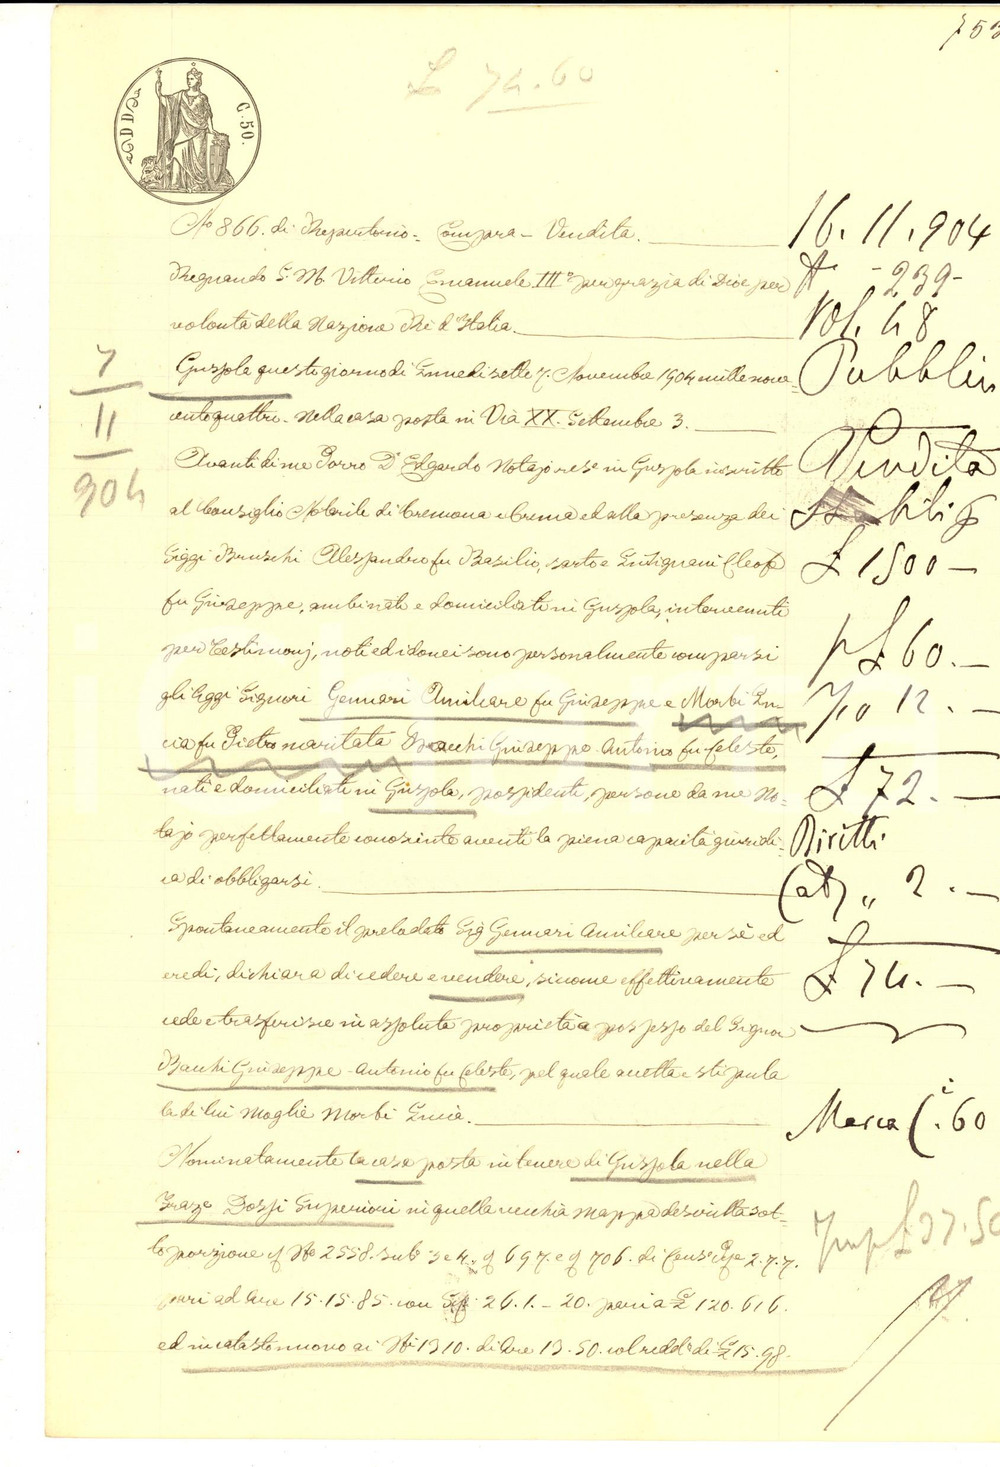 753
£ 74.60
C. 50.
No 866. di Repertorio = Compra - Vendita.
Regnando S. M. Vittorio Emanuele III° per grazia di Dio e per
volontà della Nazione Re d'Italia.
Gussola questo giorno di Lunedi sette 7. Novembre 1904 millenove-
centoquattro. Nella casa posta in Via XX. Settembre 3.
Avanti di me Porro Dr Edgardo Notajo res.e in Gussola inscritto
al Consiglio Notarile di Cremona e Crema ed alla presenza dei
Siggi Bruschi Alessandro fu Basilio, sarto e Cleofe
fu Giuseppe, ambi nati e domiciliati in Gussola, intervenuti
per testimonj, noti ed idonei sono personalmente comparsi
gli Signori Gennari Amilcare fu Giuseppe e Morbi Lu-
cia fu Pietro maritata Bacchi Giuseppe Antonio fu Celeste,
nati e domiciliati in Gussola, possidenti, persone da me No=
tajo perfettamente conosciute aventi la piena capacità giuridi=
ca di obbligarsi.
Spontaneamente il prelodato Sig Gennari Amilcare per sè ed
eredi, dichiara di cedere e vendere, siccome effettivamente
cede e trasferisce in assoluta proprietà e possesso del Signor
Bacchi Giuseppe - Antonio fu Celeste, pel quale accetta e stipula
la di lui moglie Morbi Lucia.
Nominatamente la casa posta in tenere di Gussola nella
Fraze Dossi Superiori in quella vecchia mappa descritta sot-
to porzione Ni 2558. sub 3 e 4. 697. e 706. di 2.7.7.
pari ad Are 15.15.85. con 26.1.-20. pari a £ 120.616.
ed in catasto nuovo ai Ni 1310. di Are 13.50. col redd° di £ 15.98.
7
11
904
16.11.904
N - 239 -
Vol. 48
Pubblici
Vendita
Stabili
£ 1500 -
p £ 60. -
12. -
£ 72. -
Diritti
Cat) „ 2. -
£ 74. -
Marca C.i 60
Imp £ 37.50